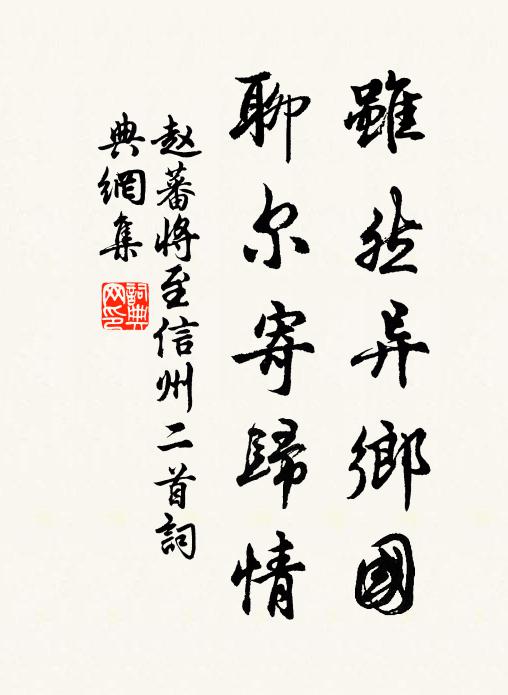 雖然异鄉國
聊尔寄歸情
赵蕃將至信州二首詞
典網集
詞典網印